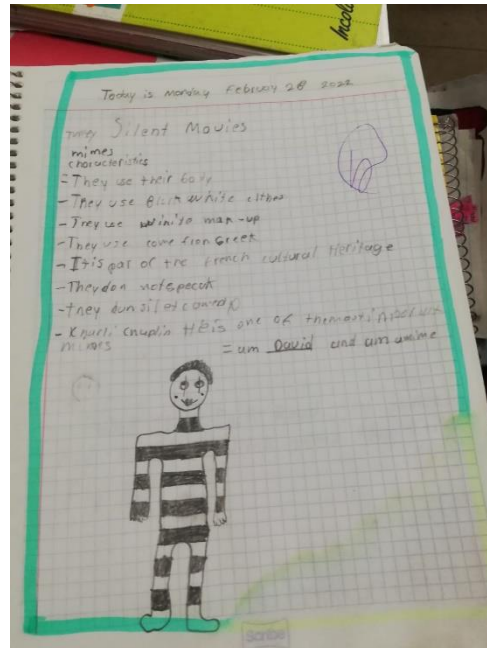 Incol
Today is monday February 28 2022
Silent Movies
mimes
characteristics
= They use their body
- They use Black white clthes
- They use winite mak-up
- They use come from Greek
- It is par of the french cultural Heritage
- They don not speack
- they dun silet comedy
- Kharli Chaplin HE is one of
mimes
= um David and um amime
Scribe